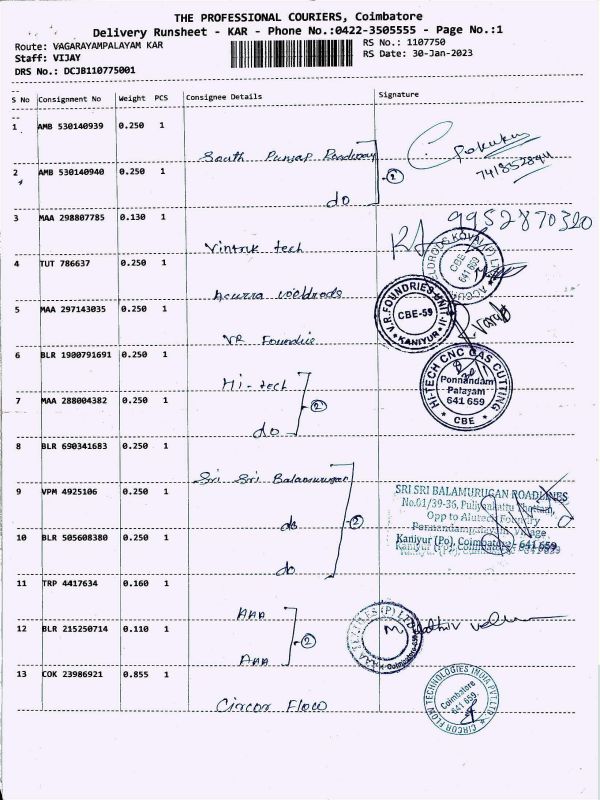 THE PROFESSIONAL COURIERS, Coimbatore
Delivery Runsheet - KAR - Phone No.:0422-3505555 - Page No.:1
Route: VAGARAYAMPALAYAM KAR
RS No.: 1107750
Staff: VIJAY
RS Date: 30-Jan-2023
DRS No.: DCJB110775001
S No Consignment No Weight PCS Consignee Details Signature
1 AMB 530140939 0.250 1
South Punjab Roadways
Pokuku
741852894
2 AMB 530140940 0.250 1
do 2
3 MAA 298807785 0.130 1
Vintak tech
9952870320
4 TUT 786637 0.250 1
Acurra weldrods
CBE
641 659
5 MAA 297143035 0.250 1
VR Foundrie
V.R. FOUNDRIES UNIT-II
CBE-59
KANIYUR
6 BLR 1900791691 0.250 1
Hi-tech
7 MAA 288004382 0.250 1
do 2
HI-TECH CNC GAS CUTTING
Ponnandam
Palayam
641 659
CBE
8 BLR 690341683 0.250 1
Sri Sri Balamurugan
9 VPM 4925106 0.250 1
do 2
SRI SRI BALAMURUGAN ROADLINES
No.01/39-36, Puliyankattu Thottam,
Opp to Alutech Foundry
Ponnandampalayam, Village
Kaniyur (Po), Coimbatore - 641 659
10 BLR 505608380 0.250 1
do
11 TRP 4417634 0.160 1
AAA
12 BLR 215250714 0.110 1
AAA 2
13 COK 23986921 0.855 1
Circor Flow
CIRCOR FLOW TECHNOLOGIES INDIA PVT LTD
Coimbatore
641 659